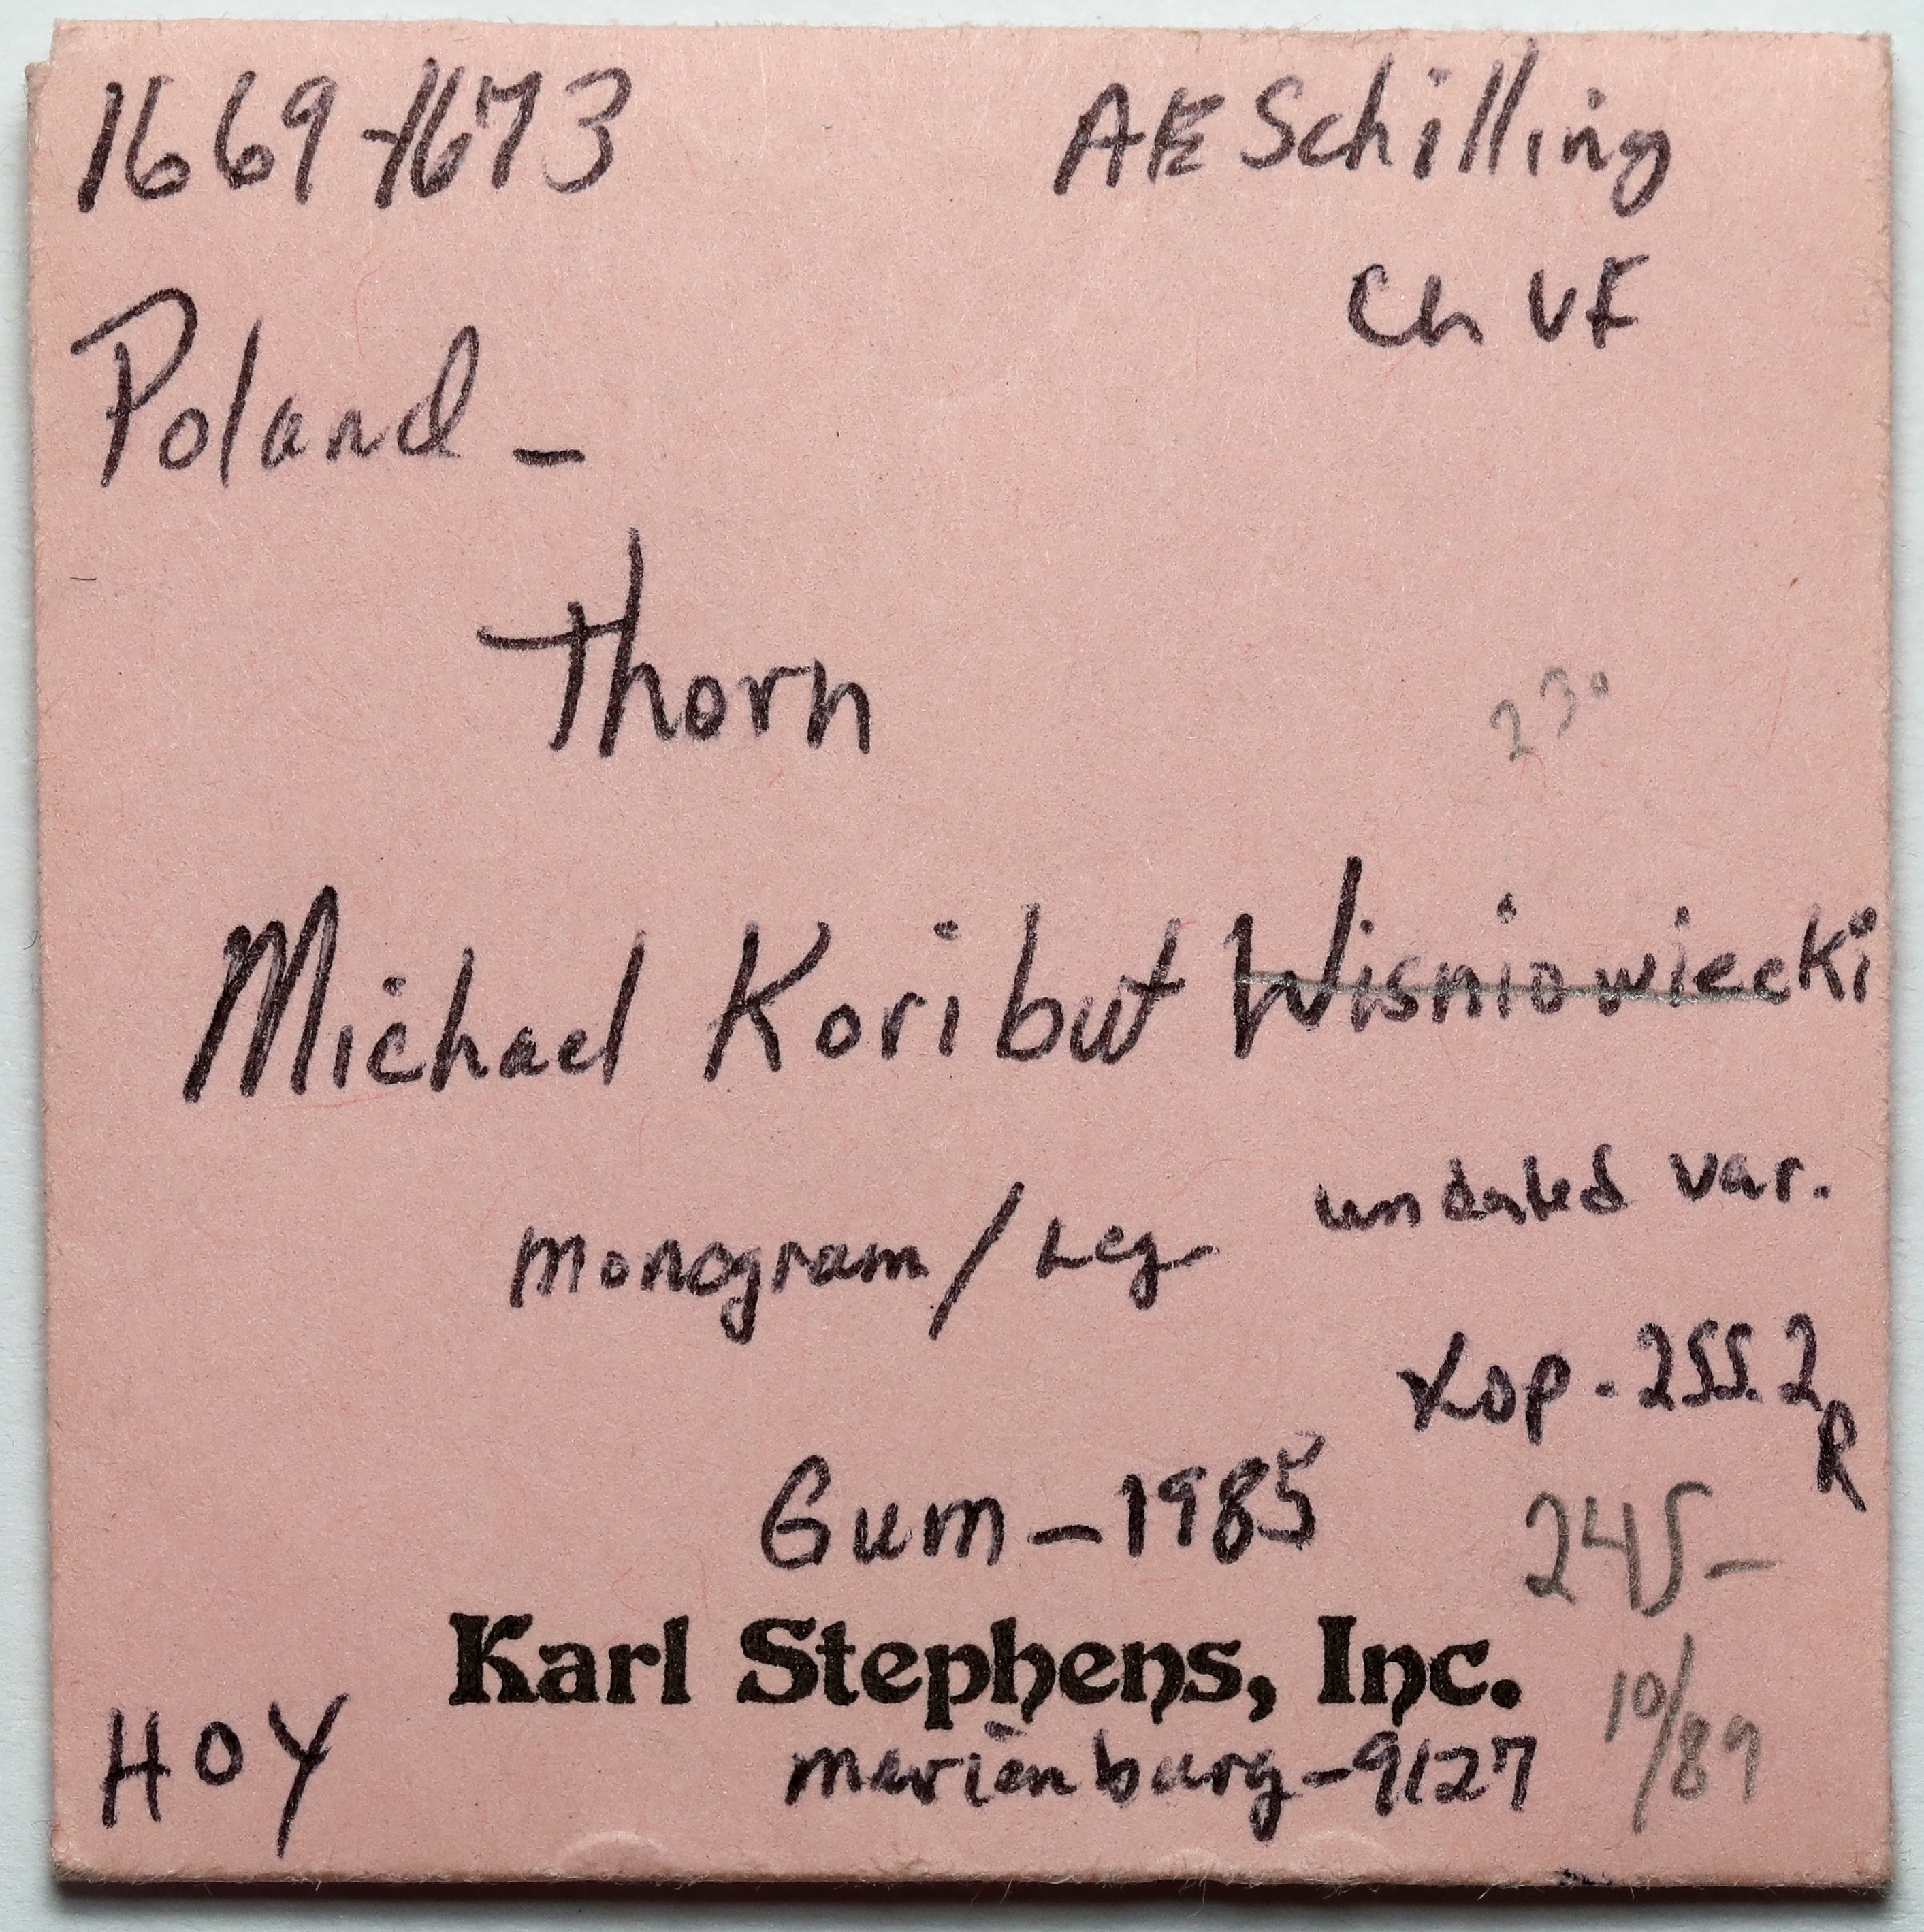 1669-1673 AE Schilling
Ch VF
Poland -
Thorn
230
Michael Koribut Wisniowiecki
undated var.
Monogram / Leg
Kop. 255.2
R
Gum - 1985
245-
Karl Stephens, Inc.
10/89
HOY
Marienburg - 9127